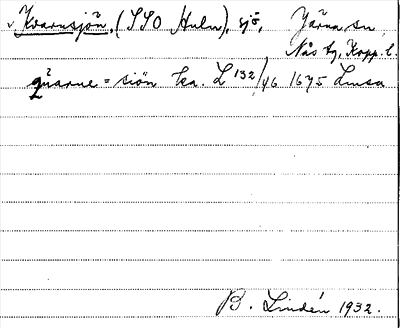 v Kvarnsjön, (SSO Huln), sjö, Järna sn,
Nås tg, Kopp. l.
quarne=siön ka. L 132/46 1675 Lmsa
B. Lindén 1932.